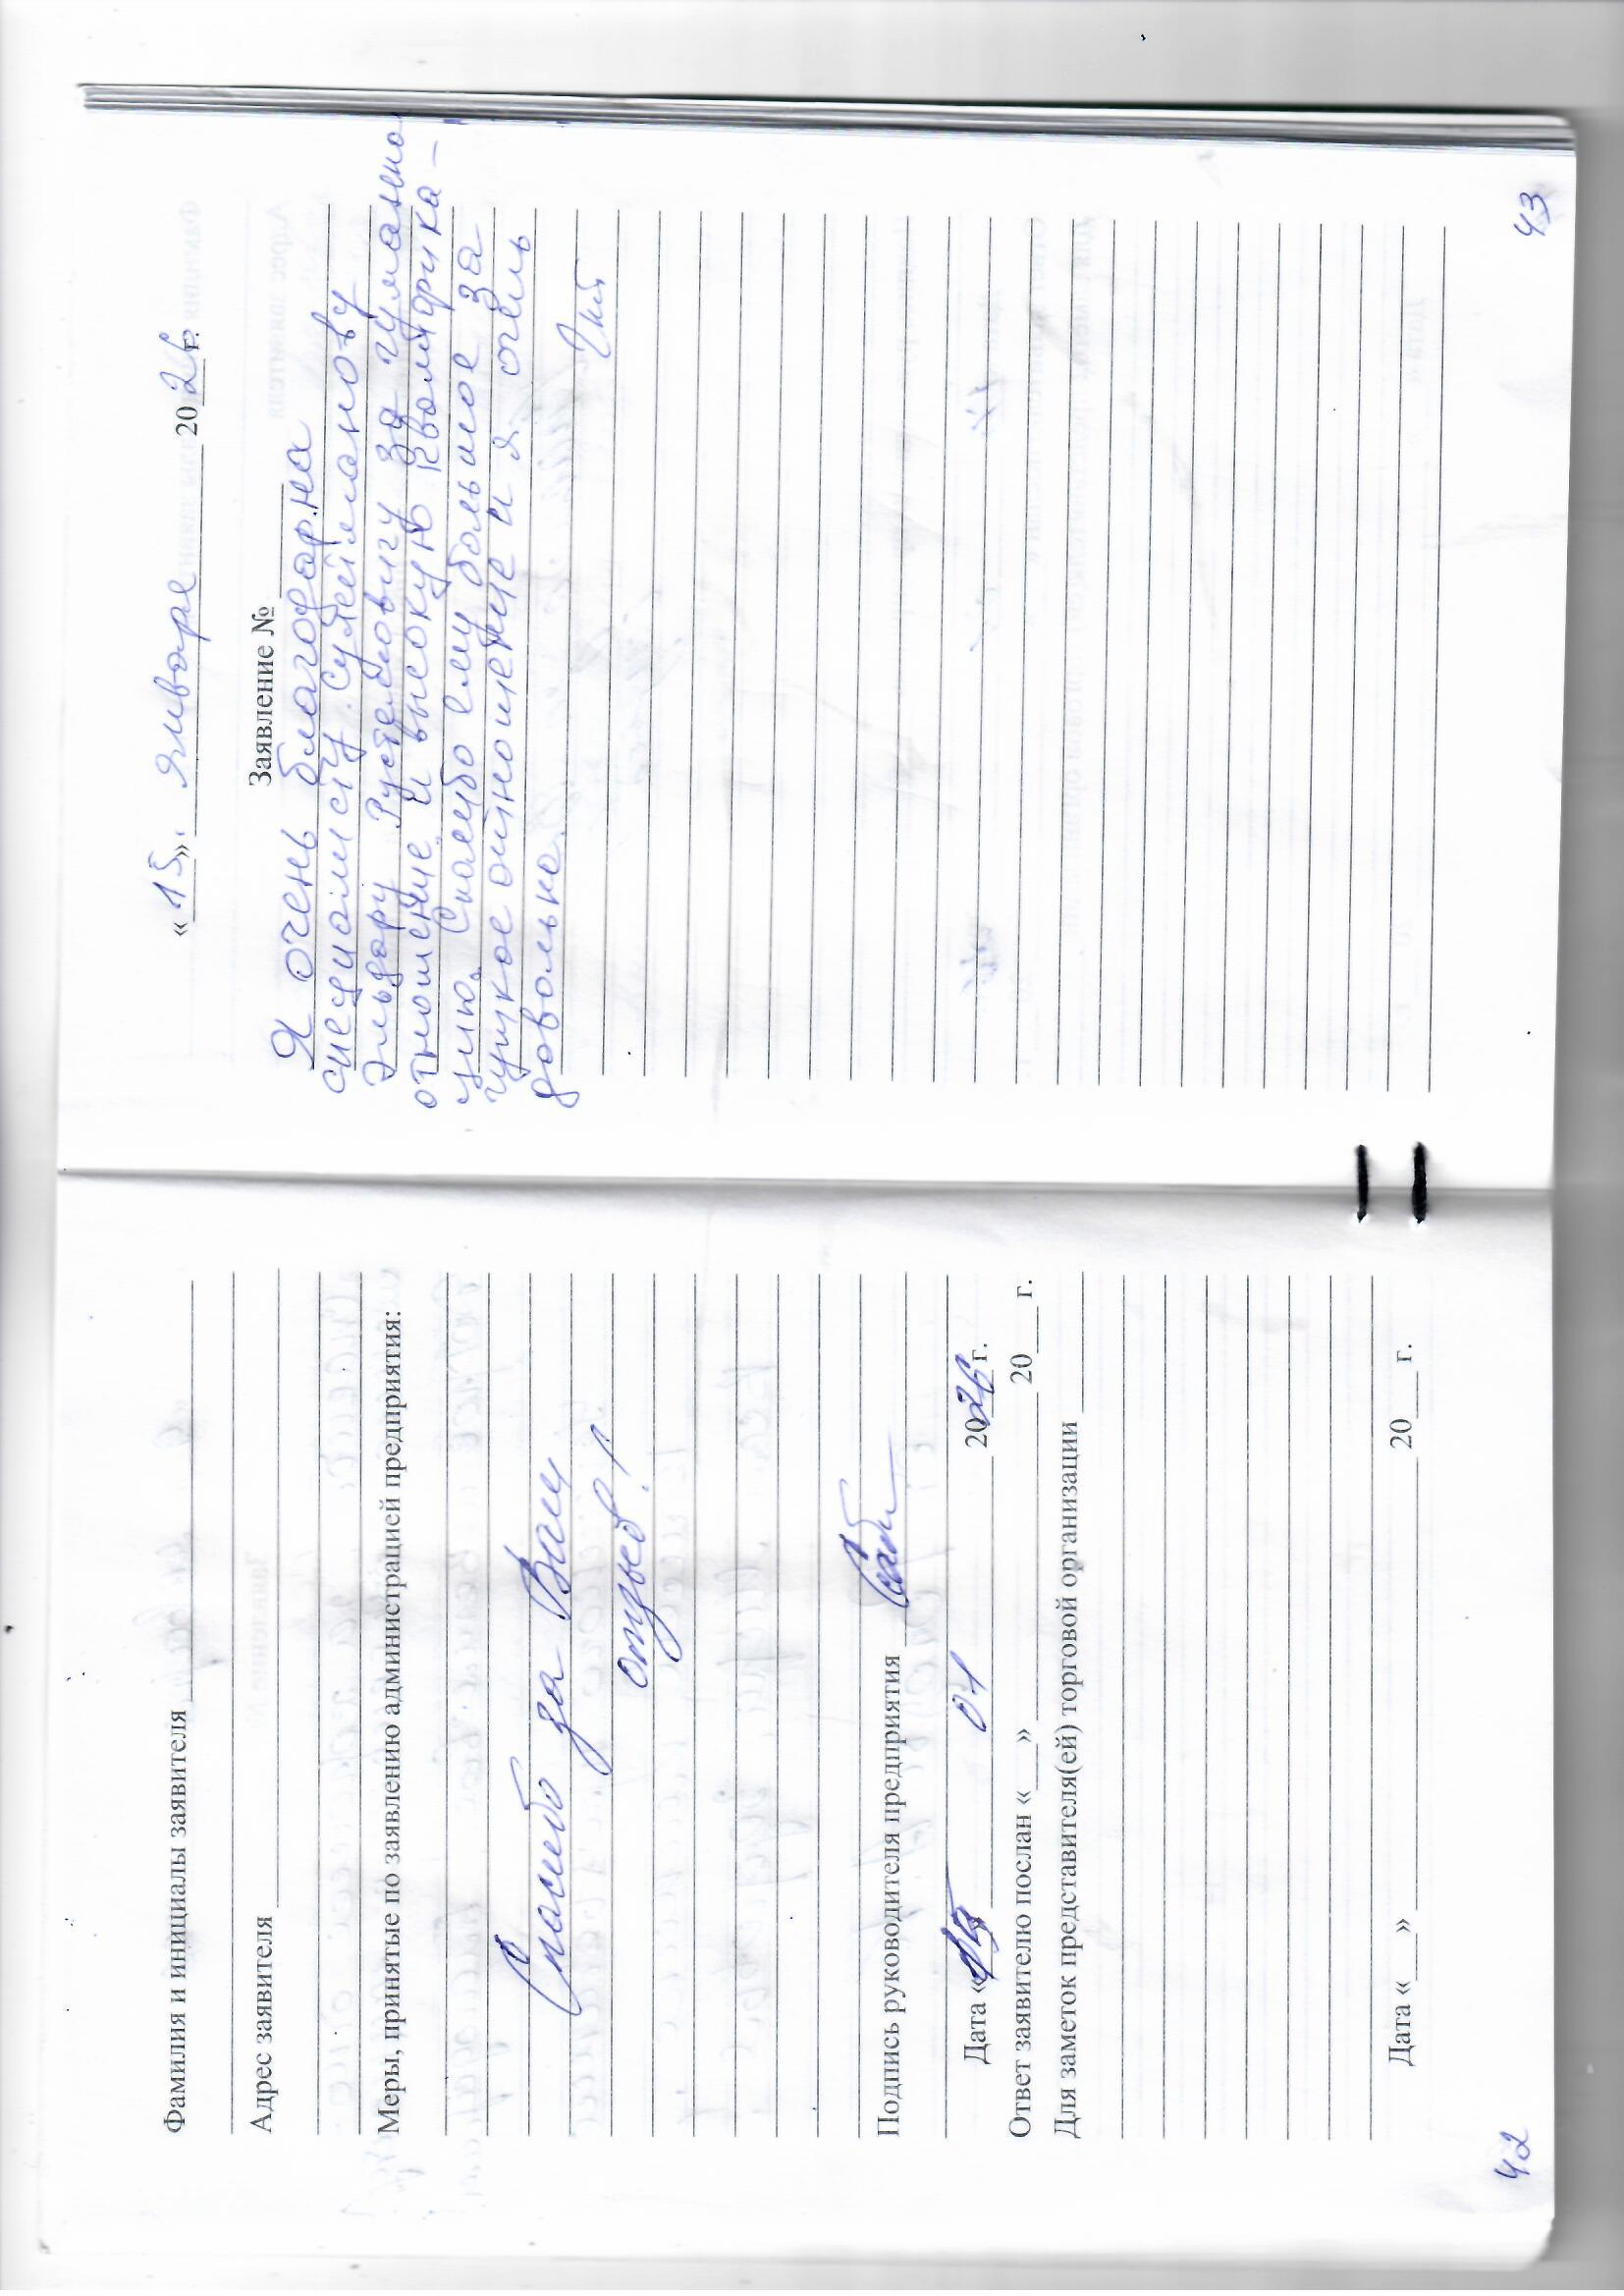 Фамилия и инициалы заявителя
Адрес заявителя
Меры, принятые по заявлению администрацией предприятия:
Спасибо за Ваш
отзыв!
Подпись руководителя предприятия
Дата « 01 2026 г.
Ответ заявителю послан «___» 20___ г.
Для заметок представителя(ей) торговой организации
Дата «___» 20___ г.
42
«15» января 2026 г.
Заявление №
Я очень благодарна
специалисту Сулейманову
Эльдару Рустемовичу за гуманно
отношение и высокую квалифика-
цию. Спасибо ему большое за
чуткое отношение и я очень
довольна.
43